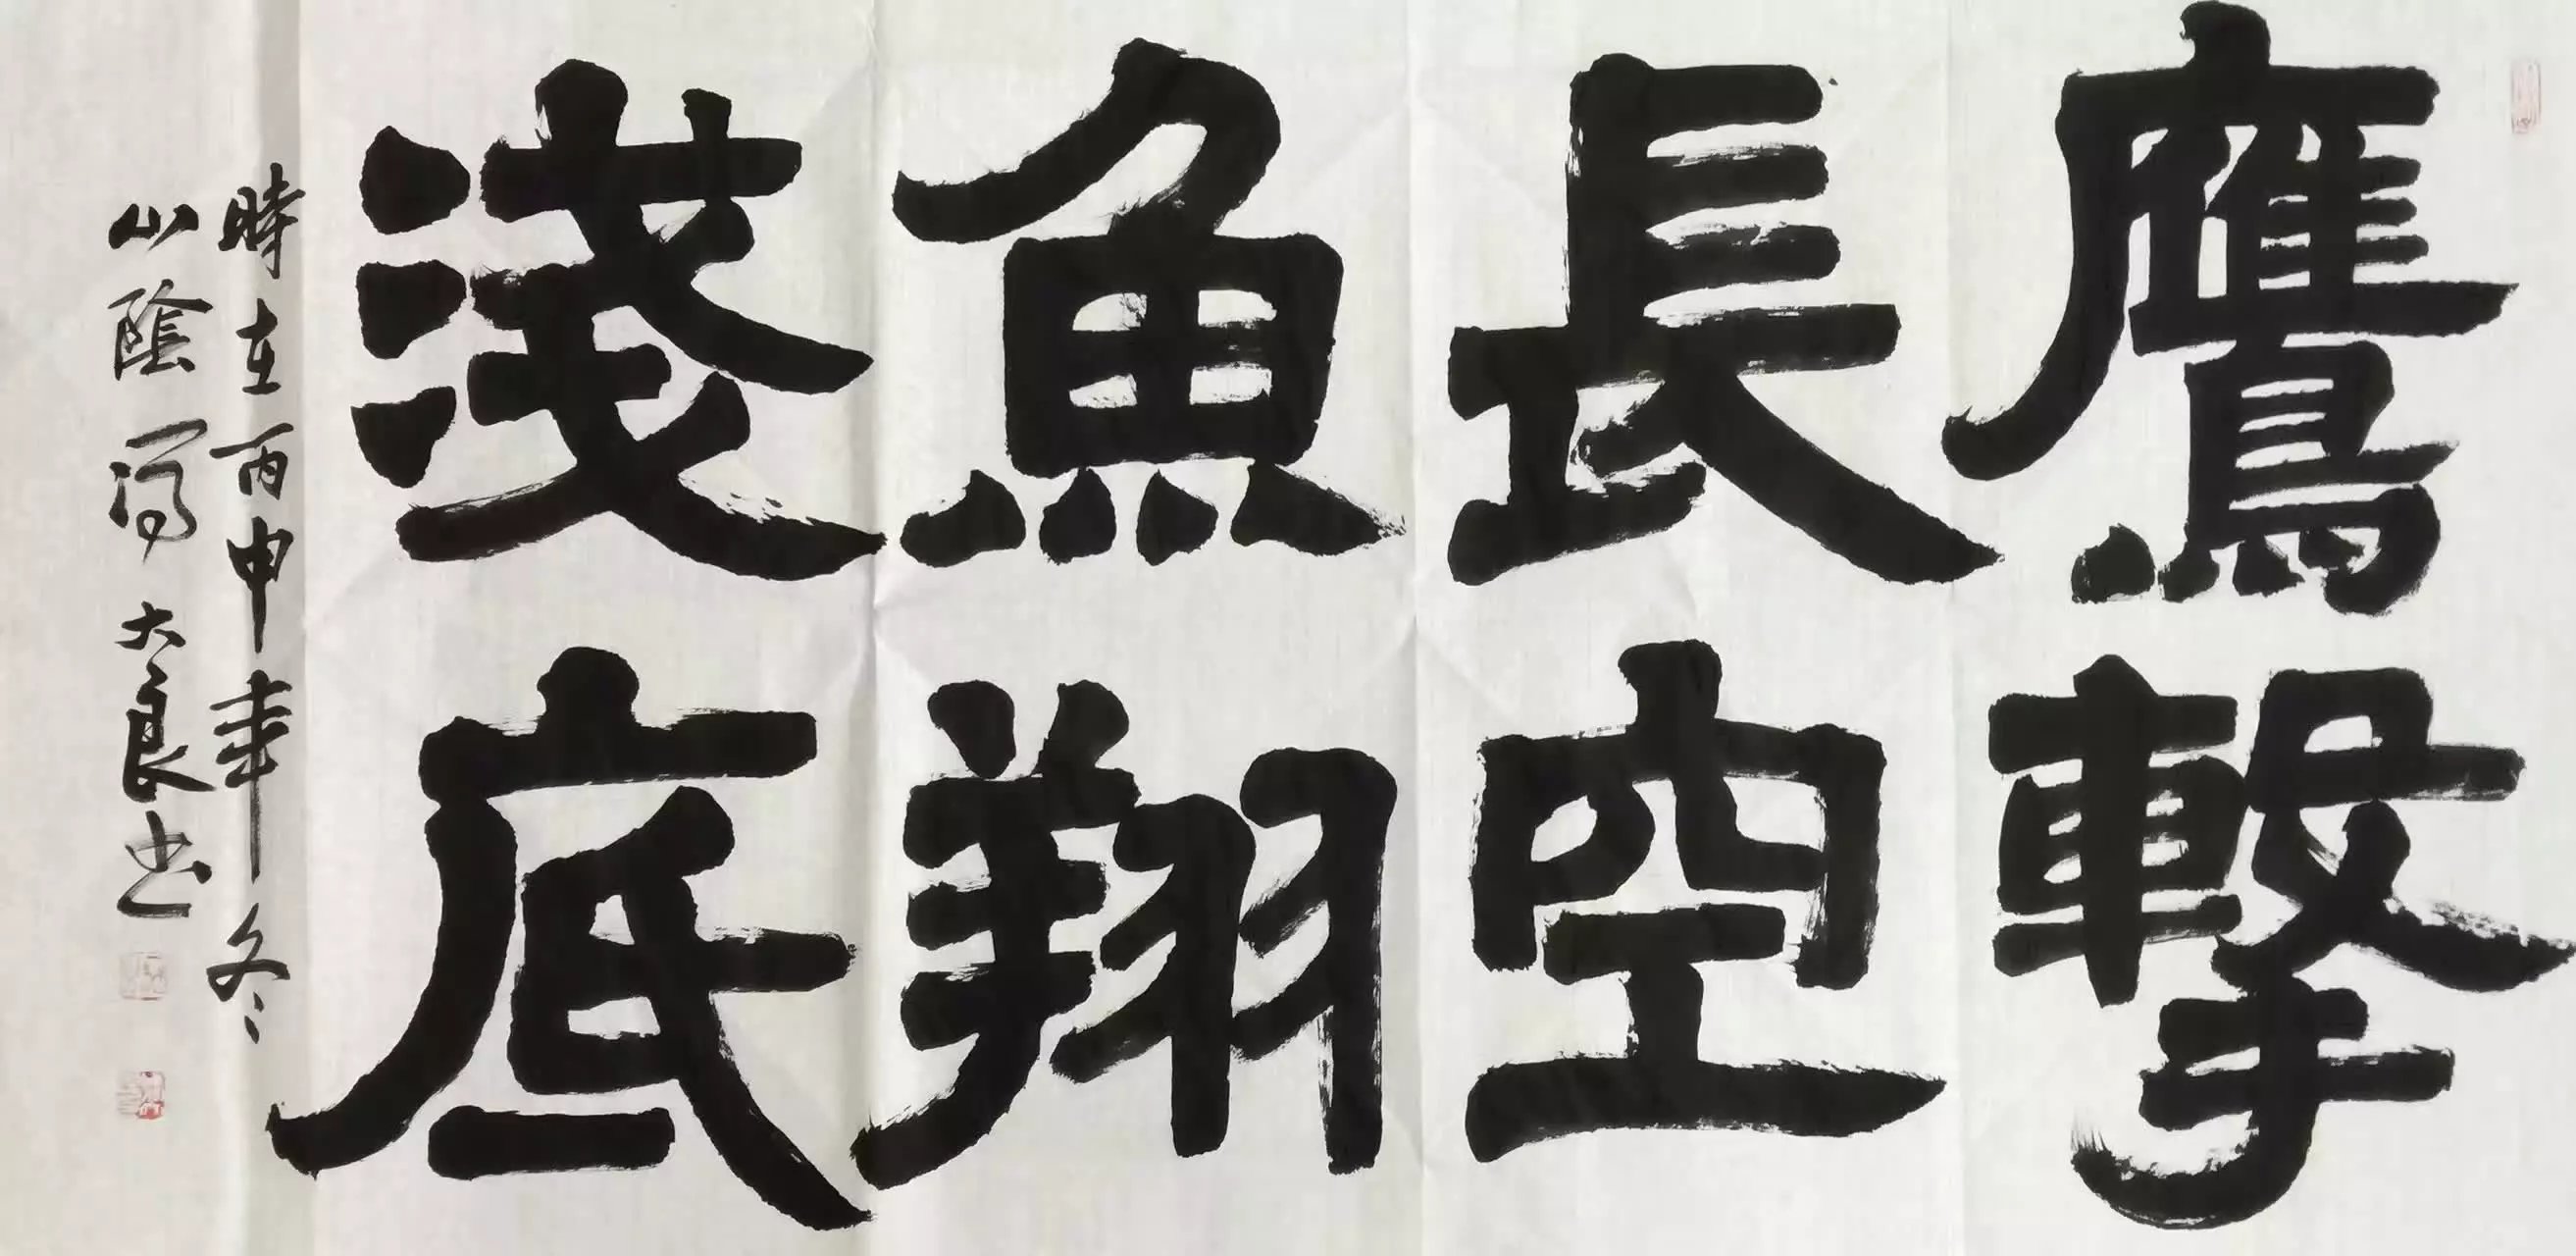 鷹擊
長空
魚翔
淺底
時在丙申年冬
山陰馮大良书